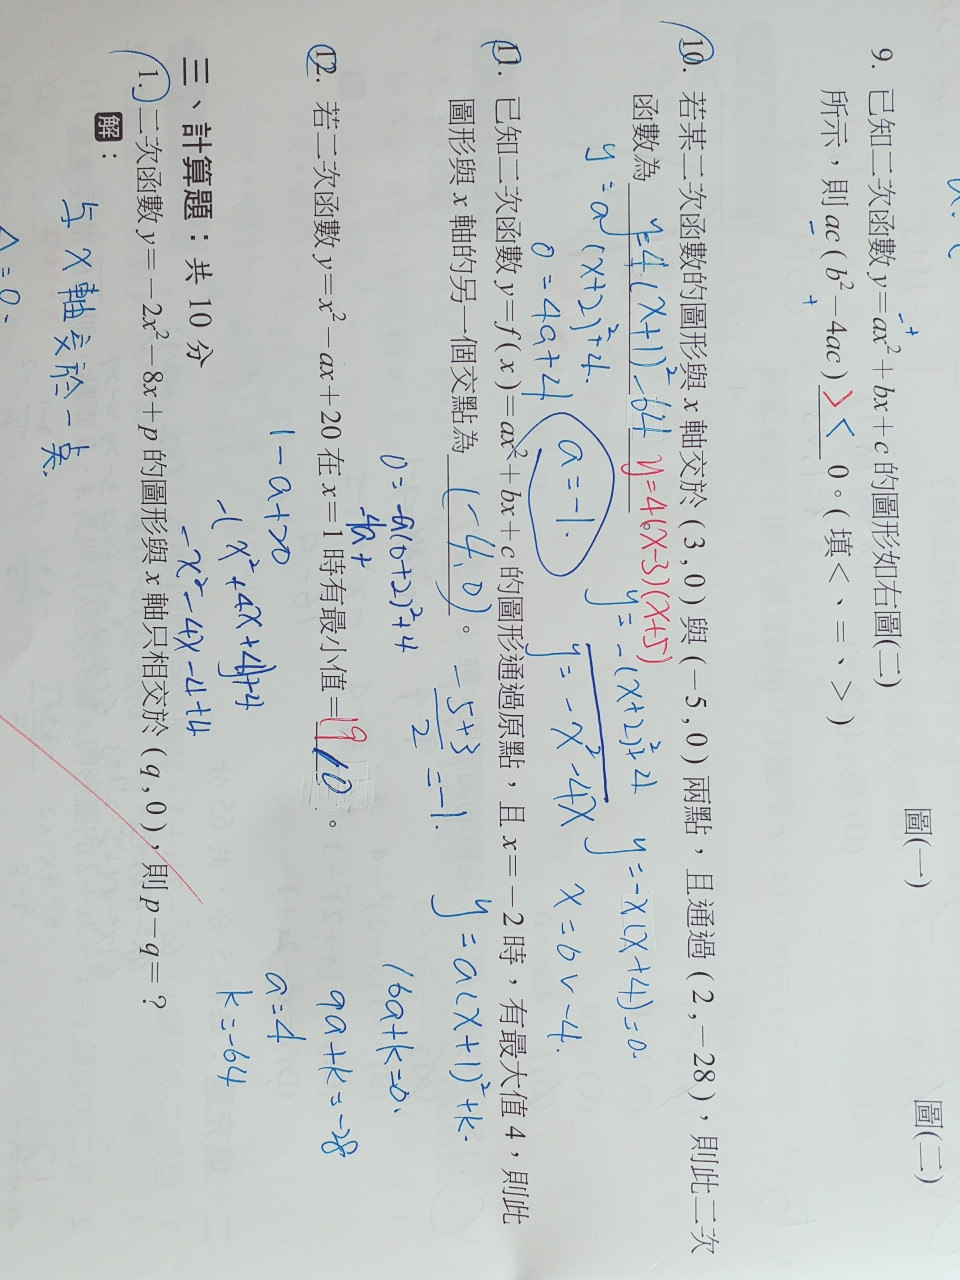 圖(一)
圖(二)
9. 已知二次函數 y=ax²+bx+c 的圖形如右圖(二)
所示，則 ac(b²−4ac) > < 0。(填<、=、>)
− +
10. 若某二次函數的圖形與 x 軸交於(3,0)與(−5,0)兩點，且通過(2,−28)，則此二次
函數為 y=4(x+1)²−64 y=4(x−3)(x+5)
y=a(x+2)²+4.
0=4a+4
a=−1.
y=−(x+2)²+4
y=−x²−4x
y=−x(x+4)=0.
x=0 v −4.
11. 已知二次函數 y=f(x)=ax²+bx+c 的圖形通過原點，且 x=−2 時，有最大值 4，則此
圖形與 x 軸的另一個交點為 (−4,0)。
−5+3
2
=−1.
y=a(x+1)²+k.
0=−a(0+2)²+4
−4a+
16a+k=0.
9a+k=−28
a=4
k=−64
12. 若二次函數 y=x²−ax+20 在 x=1 時有最小值= 19 10。
1−a+20
−(x²+4x+4)+4
−x²−4x−4+4
三、計算題：共 10 分
1. 二次函數 y=−2x²−8x+p 的圖形與 x 軸只相交於(q,0)，則 p−q=？
解：
与 x 軸交於一点.
△=0.